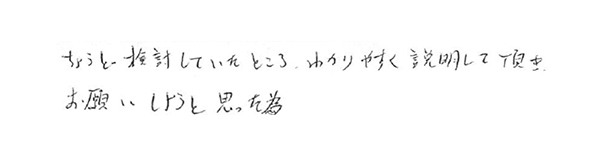 ちょうど検討していたところ、わかりやすく説明して頂き
お願いしようと思った為